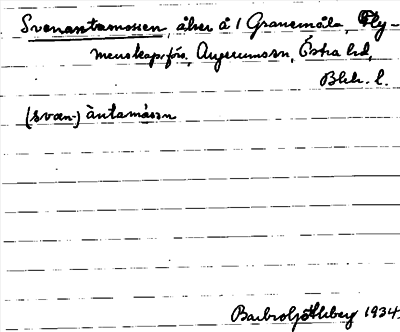 Svenantamossen, åker å 1 Granemåla, Fly-
menskap.förs., Augerumssn, Östra hd,
Blek. l.
(svæn-) àntamåssn
Barbro Göthberg 1934.